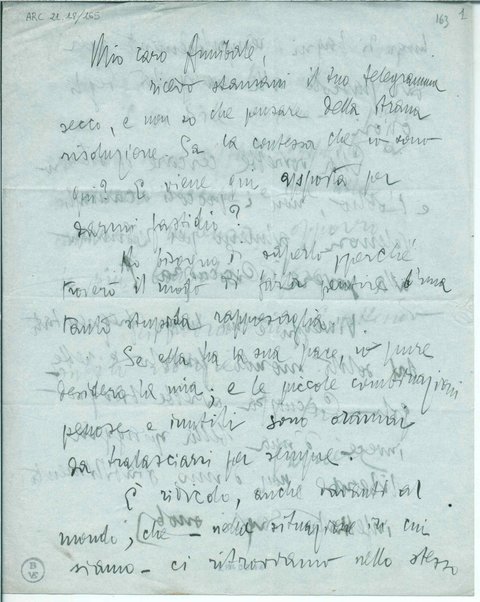 ARC 21.18/165
163 1
Mio caro Annibale,
ricevo stamani il tuo telegramma
secco, e non so che pensare della strana
risoluzione. Sa la contessa che io sono
qui? E viene qui apposta per
darmi fastidio?
Ho bisogno di saperlo perché
troverò il modo di farla pentire d'una
tanto stupida rappresaglia.
Se ella ha la sua pace, io pure
desidero la mia: e le piccole combinazioni
penose e inutili sono oramai
da tralasciarsi per sempre.
È ridicolo, anche davanti al
mondo, che – nella situazione in cui
siamo – ci ritroviamo nello stesso